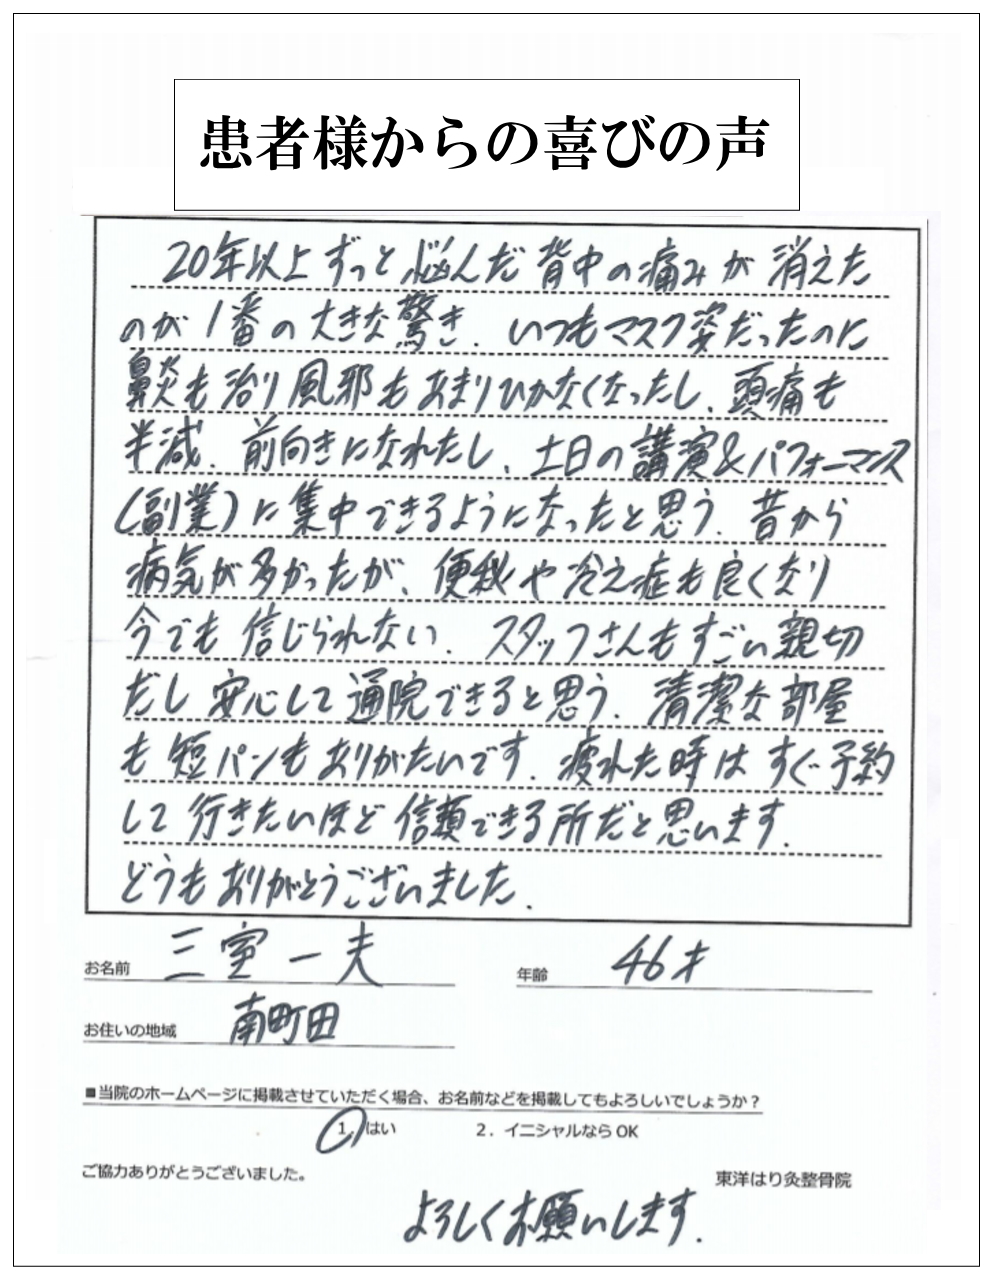 患者様からの喜びの声
20年以上ずっと悩んだ背中の痛みが消えた
のが1番の大きな驚き．いつもマスク姿だったのに
鼻炎も治り風邪もあまりひかなくなったし、頭痛も
半減．前向きになれたし、土日の講演&パフォーマンス
(副業)に集中できるようになったと思う．昔から
病気が多かったが、便秘や冷え症も良くなり
今でも信じられない．スタッフさんもすごい親切
だし安心して通院できると思う．清潔な部屋
も短パンもありがたいです．疲れた時はすぐ予約
して行きたいほど信頼できる所だと思います．
どうもありがとうございました．
お名前 三室一夫 年齢 46才
お住いの地域 南町田
■当院のホームページに掲載させていただく場合、お名前などを掲載してもよろしいでしょうか？
1. はい 2．イニシャルなら OK
ご協力ありがとうございました。 東洋はり灸整骨院
よろしくお願いします．